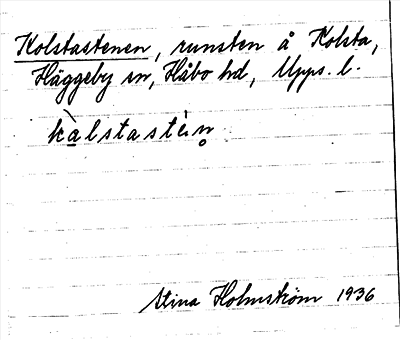 Kolstastenen, runsten å Kolsta,
Häggeby sn, Håbo hd, Upps. l.
kàlstastèn̥
Stina Holmström 1936